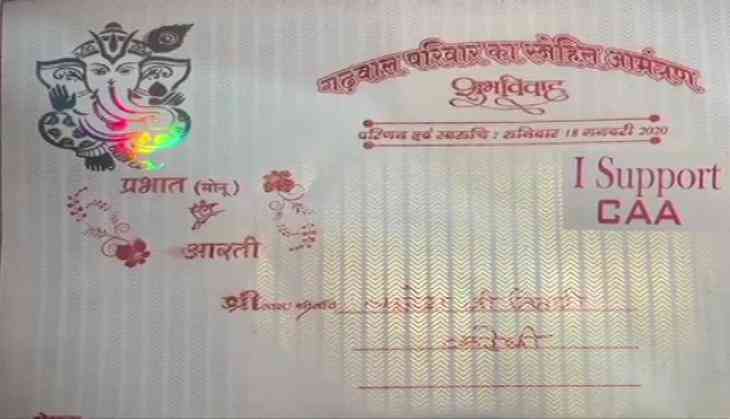 गढ़वाल परिवार का स्नेहिल आमंत्रण
शुभविवाह
परिणय एवं स्वरूचि : शनिवार 18 जनवरी 2020
I Support
CAA
प्रभात (मोनू)
आरती
श्री